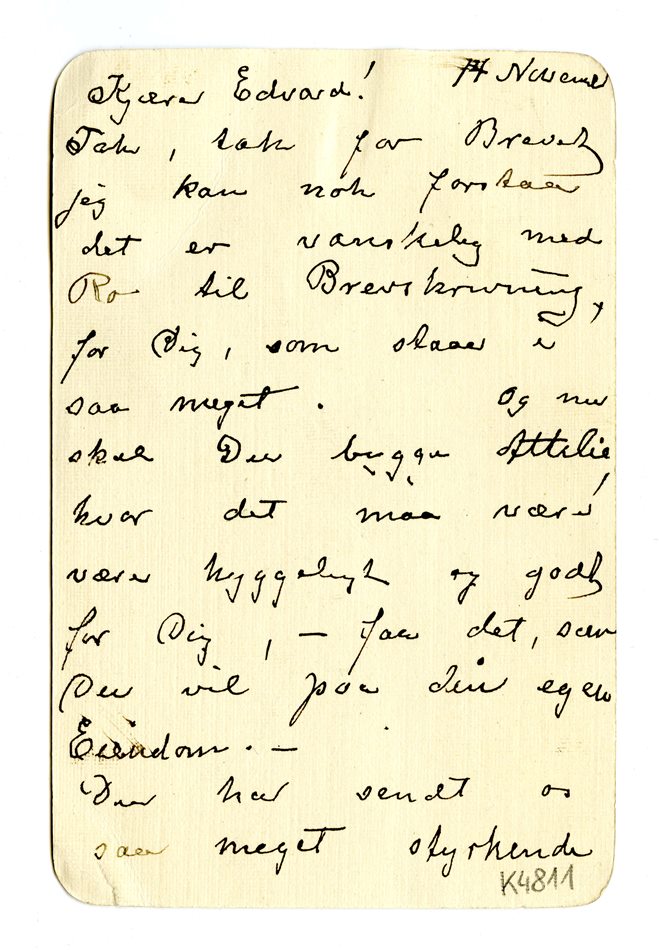 14 November
Kjære Edvard!
Tak, tak for Brevet
jeg kan nok forstaa
det er vanskelig med
Ro til Brevskrivning,
for Dig, som staaer i
saa meget. Og nu
skal Du bygge Attelie,
hvor det maa være
være hyggeligt og godt
for Dig, – faa det, som
Du vil paa din egen
Eiendom. –
Du har sendt os
saa meget styrkende
K4811